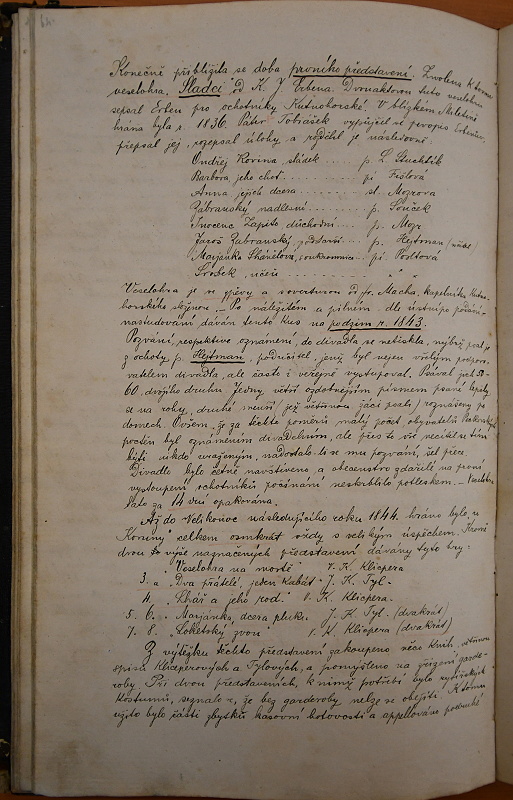 Konečně přiblížila se doba prvního představení. Zvolena k tomu
veselohra "Sládci" od K. J. Erbena. Dvouaktovou tuto veselohru
sepsal Erben pro ochotníky Kutnohorské. V blízkém Miletíně
hrána byla r. 1836. Páter Tobiášek vypůjčil si prvopis Erbenův,
přepsal jej, rozepsal úlohy a rozdělil je následovně:
Ondřej Kovina, sládek p. F.
Barbora, jeho choť pí
Anna jejich dcera sl. Mozrova
Zábranský nadlesní p. Souček
Inocenc Zapito, důchodní p. Mozr
Jaroš Zabranský, p. Hejtman
Marjánka soukromnice pí. Podtova
Srobek, učeň " "
Veselohra je se zpěvy a s overturou od p. Macha, kapelníka Kutno-
horského sborem. – Po náležitém a pilném dle
nastudování dáván tento kus na podzim r. 1843.
Pozvání, respektive oznámení, do divadla se netisklo, nýbrž psal je
z ochoty p. Hejtman, podučitel, jenž byl nejen vřelým podporo-
vatelem divadla, ale často i veřejně vystupoval. Psával jich 50-
60, dvojího druhu. Jedny větší ozdobnějším písmem psané lepily
se na rohy, druhé menší (jež většinou žáci psali) roznášeny po
domech. Ovšem, že za těchto poměrů malý počet obyvatelů
poctěn byl oznámením divadelním, ale přes to vše necítil se tím
býti nikdo uraženým, nedostalo-li se mu pozvání, šel přece.
Divadlo bylo četně navštíveno a obecenstvo zdařilé na první
vystoupení ochotníků počínání neskrblilo potleskem. – Veselohra
tato za 14 dní opakována.
Až do Velikonoc následujícího roku 1844 hráno bylo "u
Koruny" celkem osmkrát vždy s velikým úspěchem. Kromě
dvou výše naznačených představení dávány tyto hry:
"Veselohra na mostě" V. K. Klicpera
3. a "Dva přátelé, jeden kabát" J. K. Tyl.
4. "Lhář a jeho rod" V. K. Klicpera.
5. 6. "Marjánka, dcera pluku" J. K. Tyl. (dvakrát)
7. 8. "Loketský zvon" V. K. Klicpera (dvakrát)
Z výtěžku těchto představení zakoupeno něco knih, většinou
spisů Klicperových a Tylových, a pomýšleno na zřízení garde-
roby. Při dvou představeních, k nimž potřebí bylo rytířských
kostumů, seznalo se, že bez garderoby nelze se obejíti. K tomu
užito bylo části zbytků kasovní hotovosti a appellováno podruhé